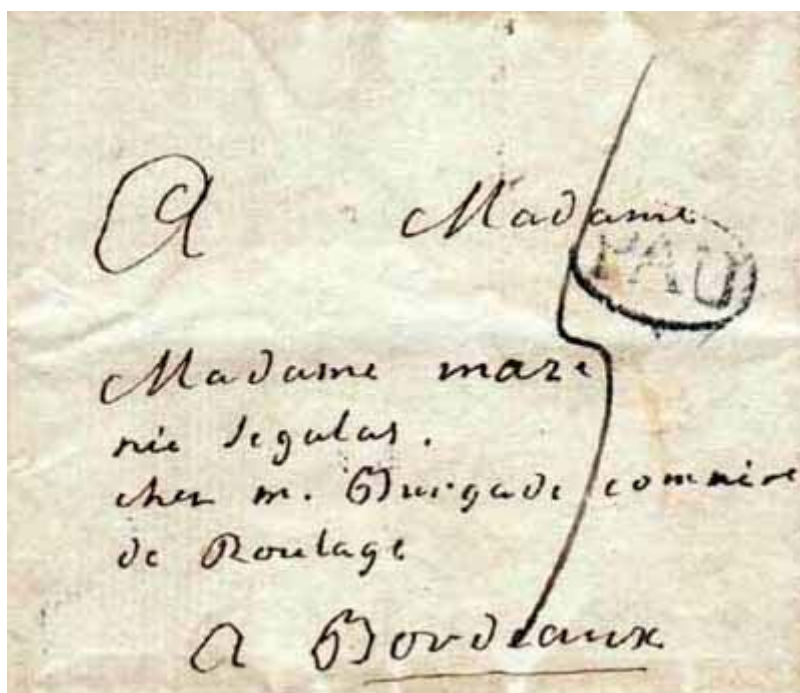 A Madame
PAU
5
Madame mare
née Segalas.
chez m. Burgade commire
de Roulage
A Bordeaux